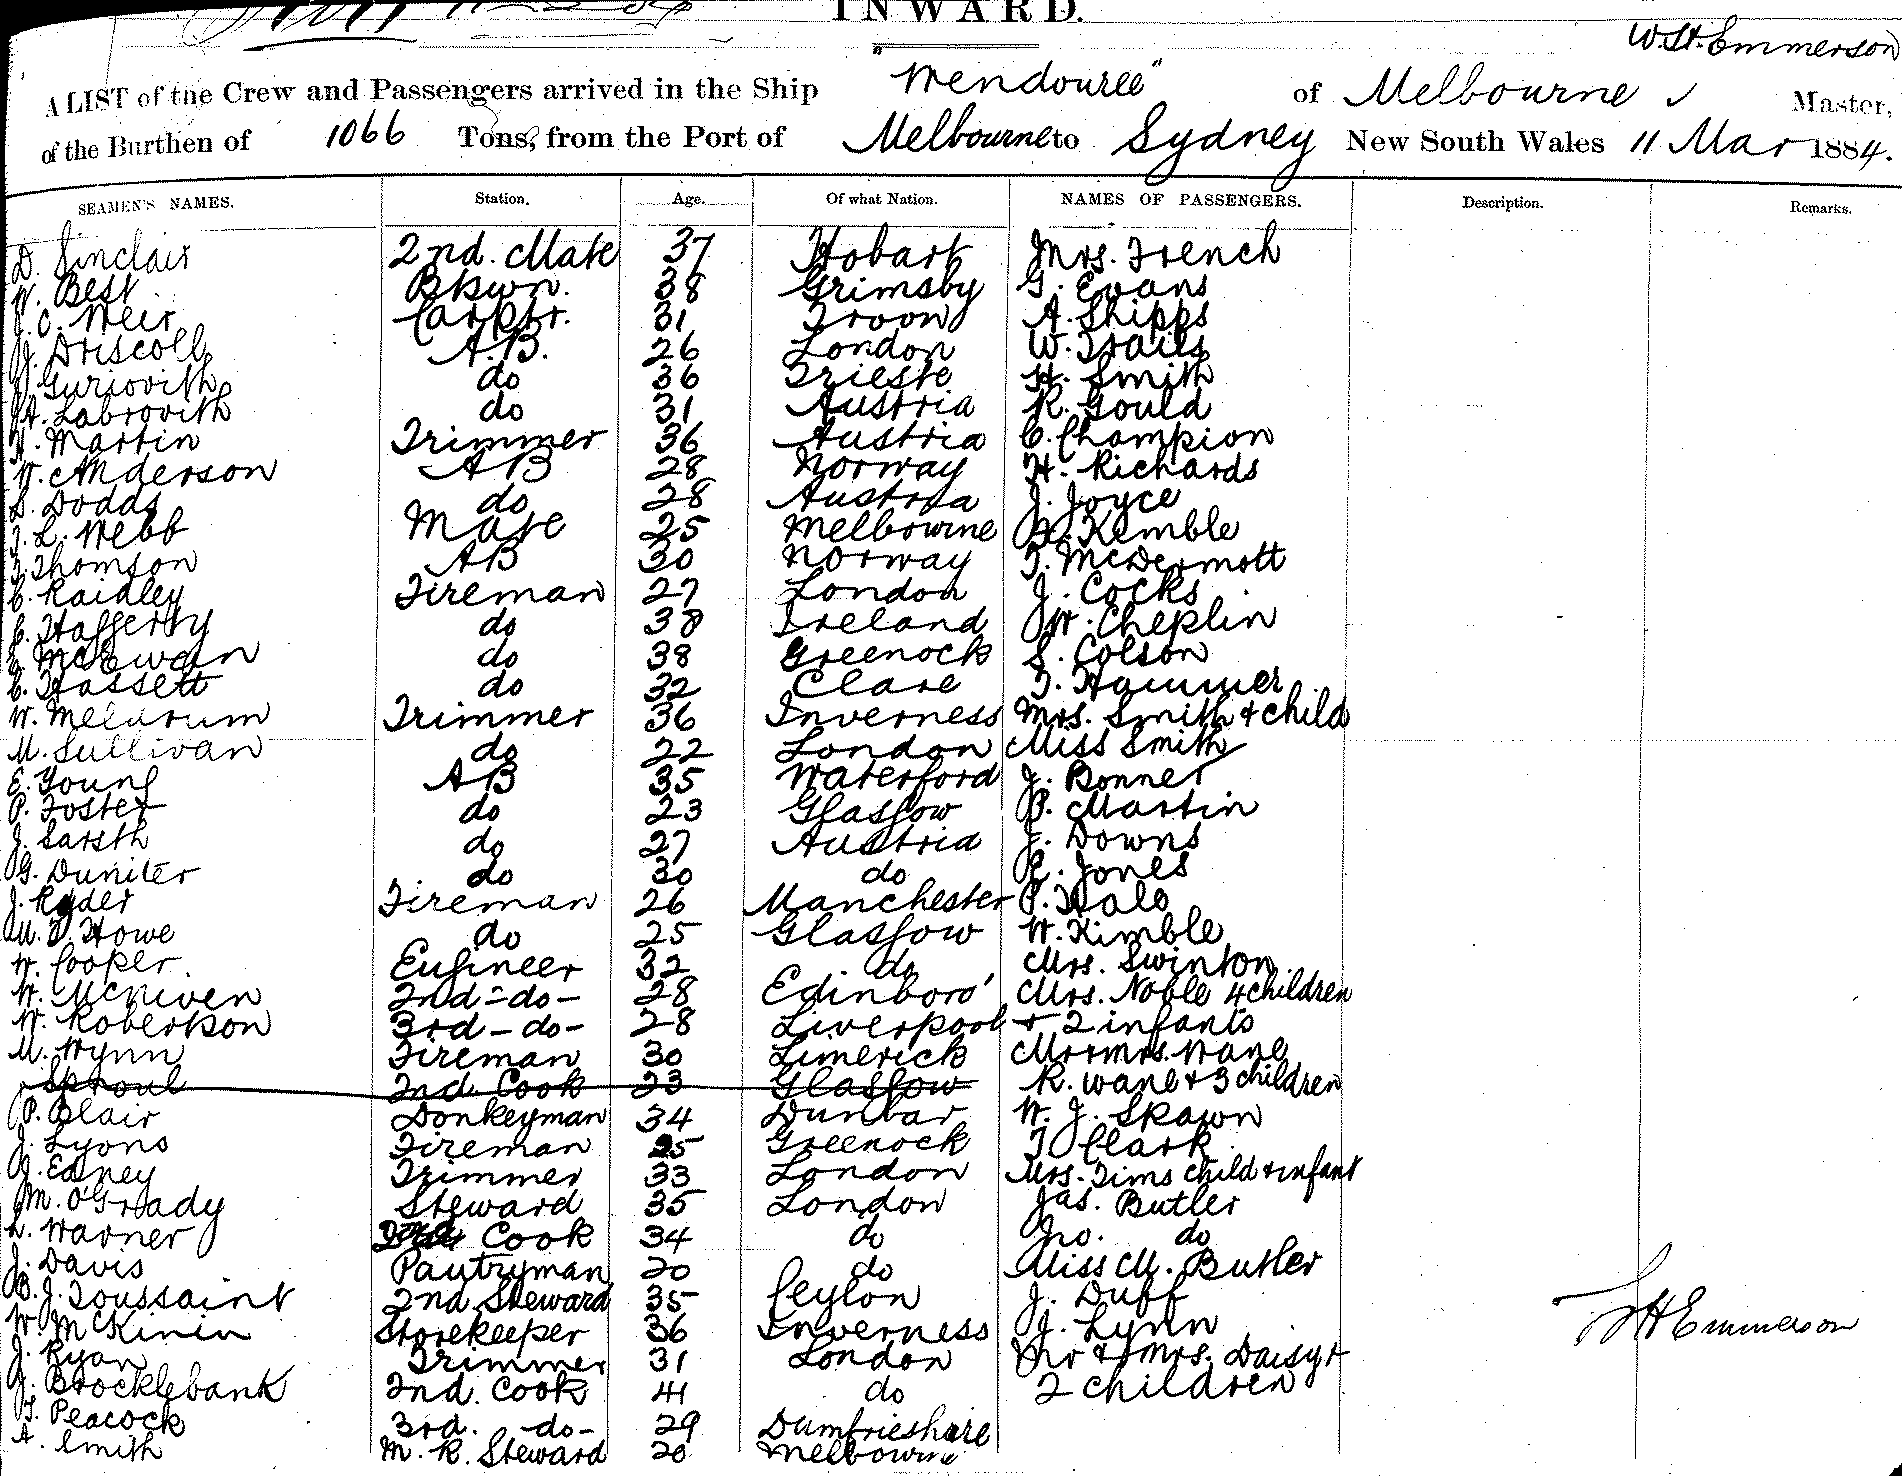 INWARD.
W.H. Emmerson
A LIST of the Crew and Passengers arrived in the Ship "Wendouree" of Melbourne Master,
of the Burthen of 1066 Tons, from the Port of Melbourne to Sydney New South Wales 11 Mar 1884.
SEAMEN'S NAMES. Station. Age. Of what Nation. NAMES OF PASSENGERS. Description. Remarks.
D. Sinclair 2nd. Mate 37 Hobart Mrs. French
W. Best Btswn. 38 Grimsby G. Evans
C. Weir Carptr. 31 Troon A. Shipps
J. Driscoll A.B. 26 London W. Trails
Guriovith do 36 Trieste H. Smith
Labrovith do 31 Austria R. Gould
Martin Trimmer 36 Austria C. Champion
W. Anderson AB 28 Norway H. Richards
S. Dodds do 28 Austria J. Joyce
L. Webb Mate 25 Melbourne Kemble
Thomson AB 30 Norway T. McDermott
C. Raidley Fireman 27 London J. Cocks
C. Haggerty do 38 Ireland W. Cheplin
McEwan do 38 Greenock S. Colson
C. Hassett do 32 Clare T. Hammer
W. Meldrum Trimmer 36 Inverness Mrs. Smith & child
M. Sullivan do 22 London Miss Smith
E. Young AB 35 Waterford J. Bonner
P. Foster do 23 Glasgow P. Martin
J. Sarsth do 27 Austria J. Downs
G. Duniter do 30 do E. Jones
J. Ryder Fireman 26 Manchester P. Halo
Howe do 25 Glasgow W. Kimble
W. Cooper Engineer 32 do Mrs. Swinton
W. McNiven 2nd - do - 28 Edinboro' Mrs. Noble 4 children
W. Robertson 3rd - do - 28 Liverpool + 2 infants
M. Wynn Fireman 30 Limerick Mr & Mrs. Wane
Sproul 2nd Cook 23 Glasgow R. Wane + 3 children
P. Blair Donkeyman 34 Dunbar W. J. Spawn
J. Lyons Fireman 25 Greenock T Clark
J. Edney Trimmer 33 London Mrs. Tims child & infant
M. O'Grady Steward 35 London Jas. Butler
L. Warner Cook 34 do Jno. do
J. Davis Pantryman 20 do Miss M. Butler
B. J. Toussaint 2nd Steward 35 Ceylon J. Duff
W. McKinin Storekeeper 36 Inverness J. Lynn
J. Ryan Trimmer 31 London Mr & Mrs. Daisy +
J. Brocklebank 2nd. Cook 41 do 2 children
T. Peacock 3rd. - do - 29 Dumfrieshire
A. Smith M. R. Steward 20 Melbourne
Emmerson